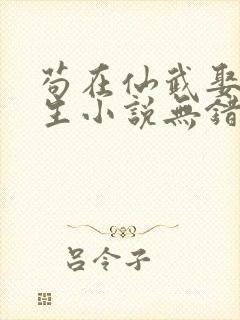 苟在仙武娶
生小說無錯
呂令子